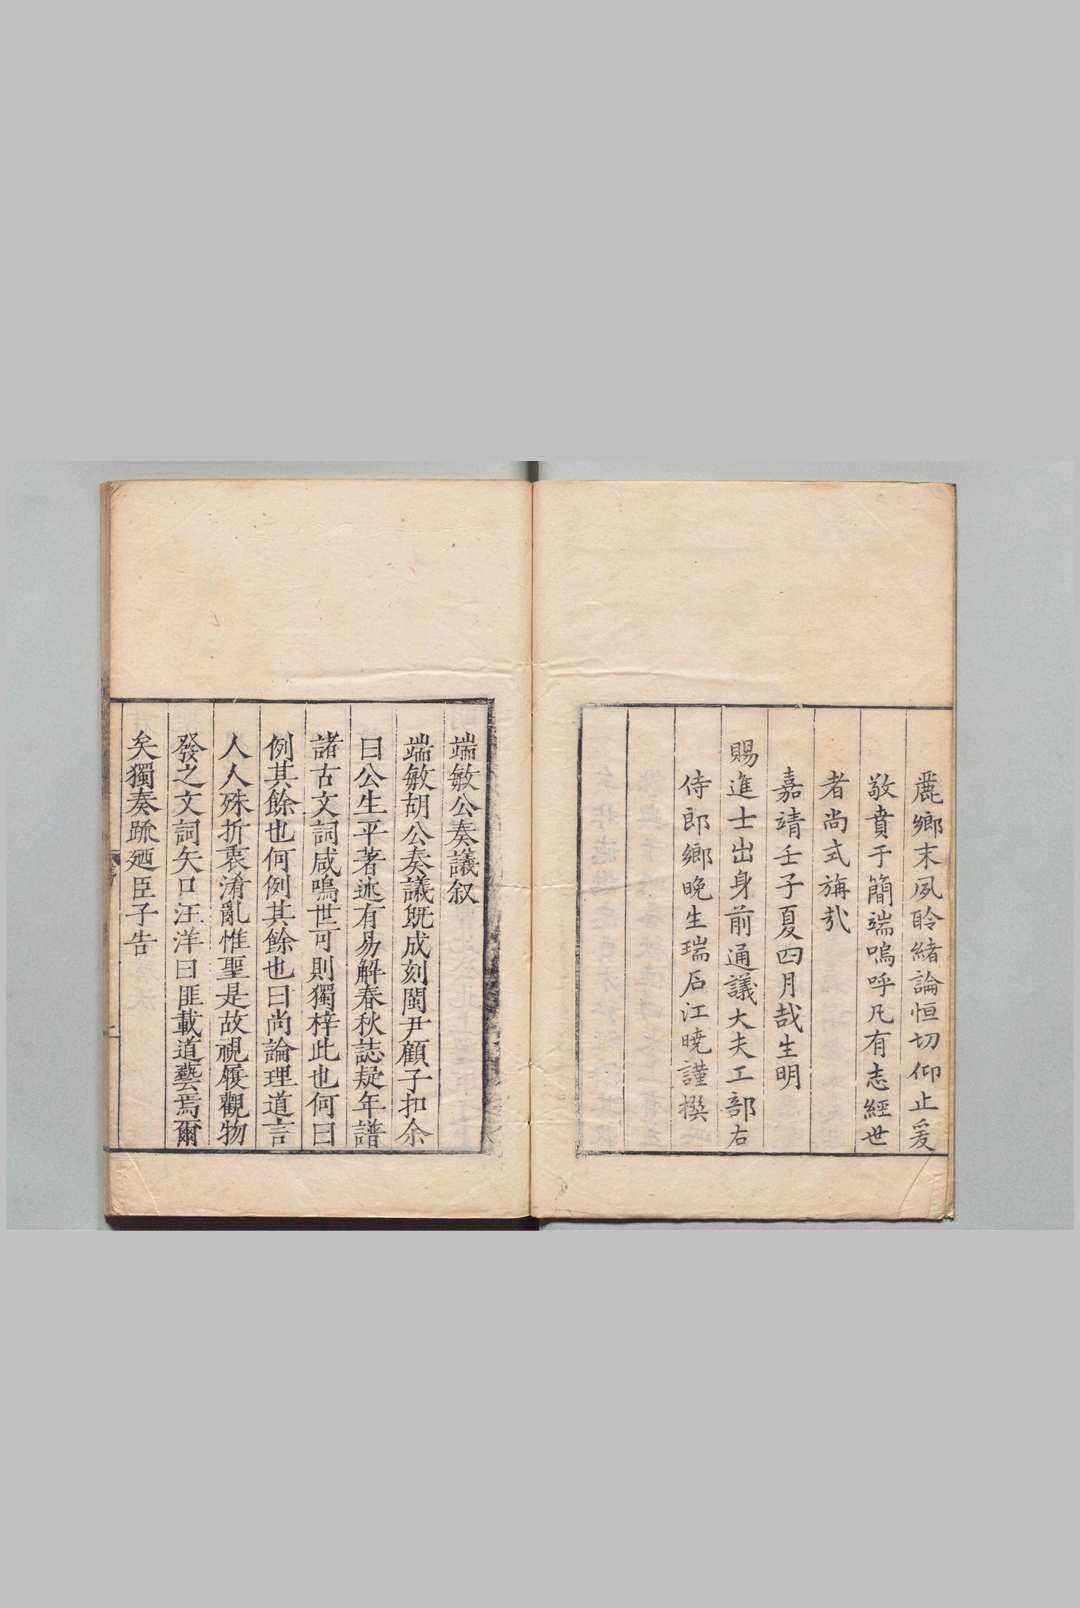 麗鄉末夙聆緒論恒切仰止爰
敬賁于簡端嗚呼凡有志經世
者尚式旃㢤
嘉靖壬子夏四月哉生明
賜進士出身前通議大夫工部右
侍郎鄉晚生瑞石江曉謹撰
端敏公奏議叙
端敏胡公奏議既成刻閩尹顧子扣余
曰公生平著述有易解春秋誌疑年譜
諸古文詞咸鳴世可則獨梓此也何曰
例其餘也何例其餘也曰尚論理道言
人人殊折衷淆亂惟聖是故視履觀物
發之文詞矢口汪洋曰匪載道藝焉爾
矣獨奏䟽廼臣子告